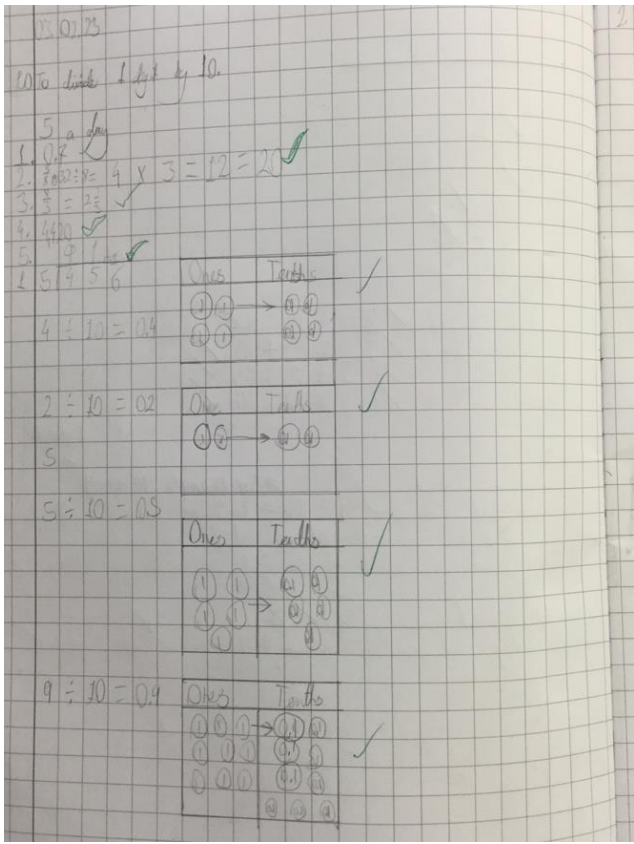 03.02.23
LO To divide 1 digit by 10.
5 a day
1. 0.7
2. 4 x 3 = 12 = 20
3.
4. 4420
5.
1 5 4 5 6
Ones Tenths
1 1 → 0.1 0.1
1 1 0.1 0.1
4 ÷ 10 = 0.4
2 ÷ 10 = 0.2
Ones Tenths
1 1 → 0.1 0.1
5
5 ÷ 10 = 0.5
Ones Tenths
1 1 0.1 0.1
1 1 → 0.1 0.1
1 0.1
9 ÷ 10 = 0.9
Ones Tenths
1 1 1 → 0.1 0.1
1 1 1 0.1 0.1
1 1 1 0.1 0.1
0.1 0.1 0.1